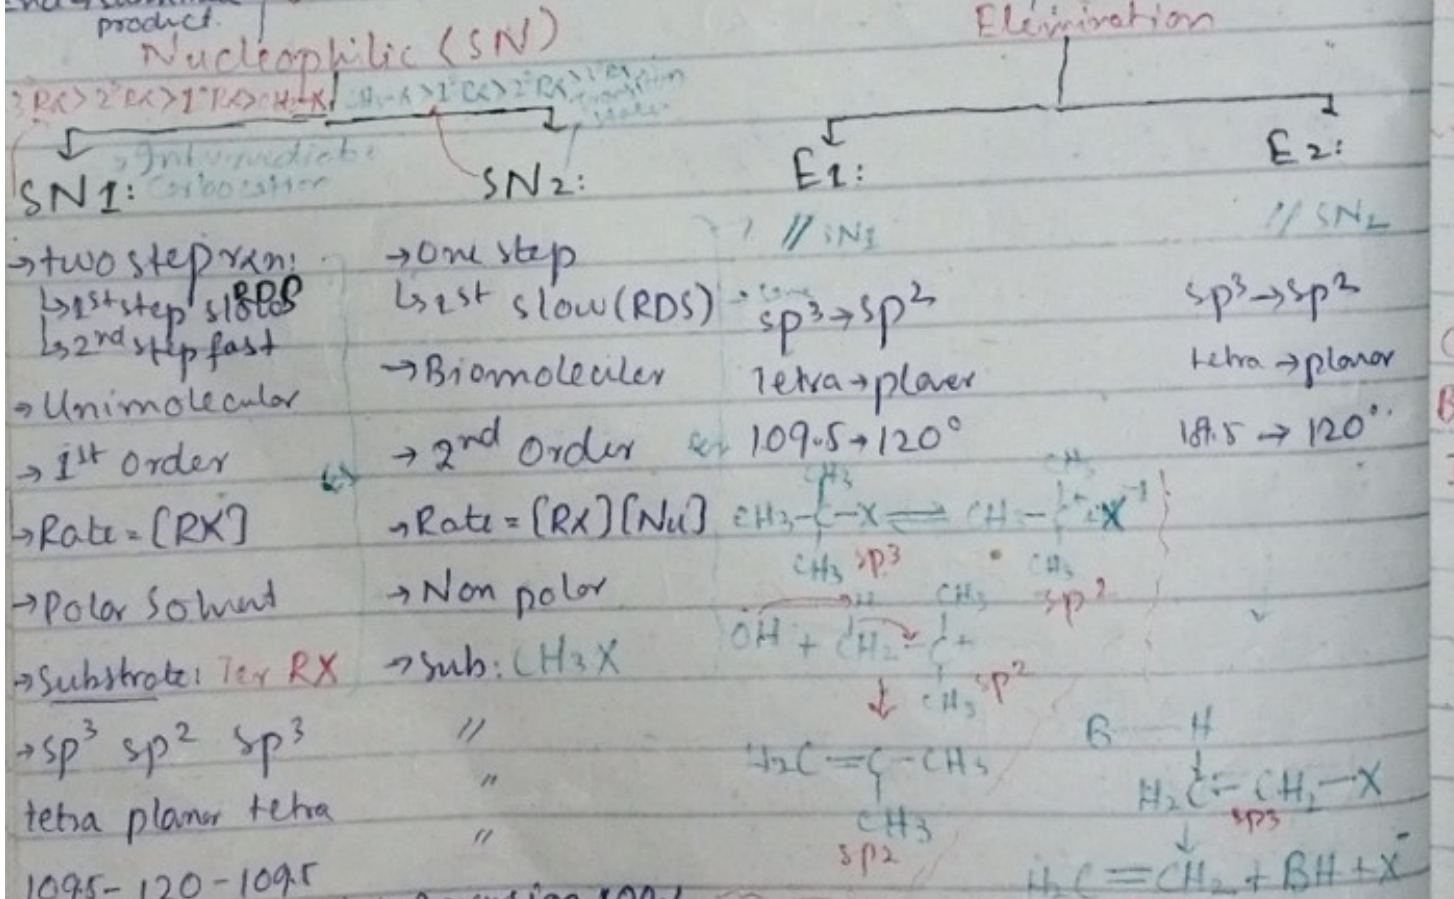 product.
Nucleophilic (SN)
Elimination
3°RX>2°RX>1°RX>CH3-X
CH3-X>1°RX>2°RX>
Intermediate
Carbocation
SN1:
SN2:
E1:
E2:
→two step rxn:
↳1st step slow RDS
↳2nd step fast
→Unimolecular
→1st order
→Rate = [RX]
→Polar Solvent
→Substrate: Ter RX
→sp3 sp2 sp3
tetra planar tetra
109.5-120-109.5
→One step
↳1st slow (RDS)
→Biomoleciler
→2nd Order
→Rate = [RX][Nu]
→Non polar
→Sub: CH3X
//
//
//
// SN1
sp3→sp2
Tetra→planer
109.5→120°
CH3
CH3-C-X ⇌ CH3-C+ X-1
CH3 sp3
CH3
sp2
H CH3
OH + CH2-C+
CH3 sp2
↓
H2C=C-CH3
CH3
sp2
// SN2
sp3→sp2
tetra→planar
109.5→120°
B H
H2C-CH2-X
sp3
↓
H2C=CH2+BH+X-